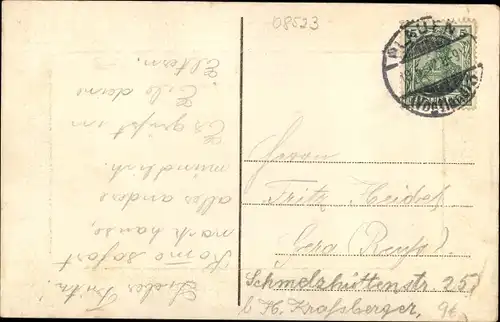 08523
PLAUEN
(VOGTLAND)
Lieber Fritz!
Komme sofort
nach hause,
alles andere
mündlich.
Es grüßt im
Eile deine
Eltern.
Herrn
Fritz Heidel
Gera (Reuß)
Schmelzhüttenstr. 25
b H. Kraßberger,